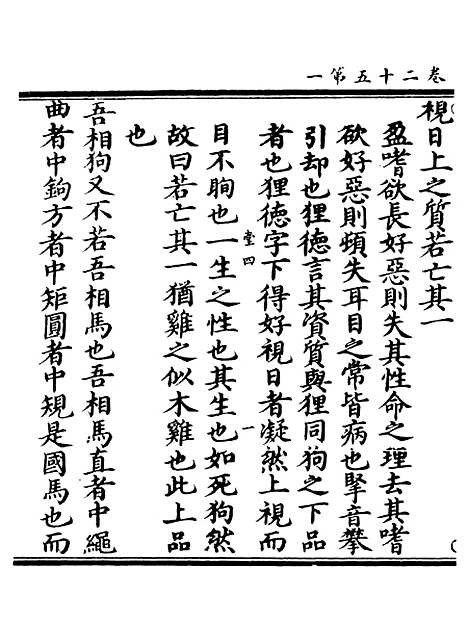 卷二十五第一
視日上之質若亡其一
盈嗜欲長好惡則失其性命之理去其嗜
欲好惡則頓失耳目之常皆病也掔音攀
引却也狸徳言其資質與狸同狗之下品
者也狸徳字下得好視日者凝然上視而
堂四
一
目不眴也一生之性也其生也如死狗然
故曰若亡其一猶雞之似木雞也此上品
也
吾相狗又不若吾相馬也吾相馬直者中繩
曲者中鉤方者中矩圓者中規是國馬也而